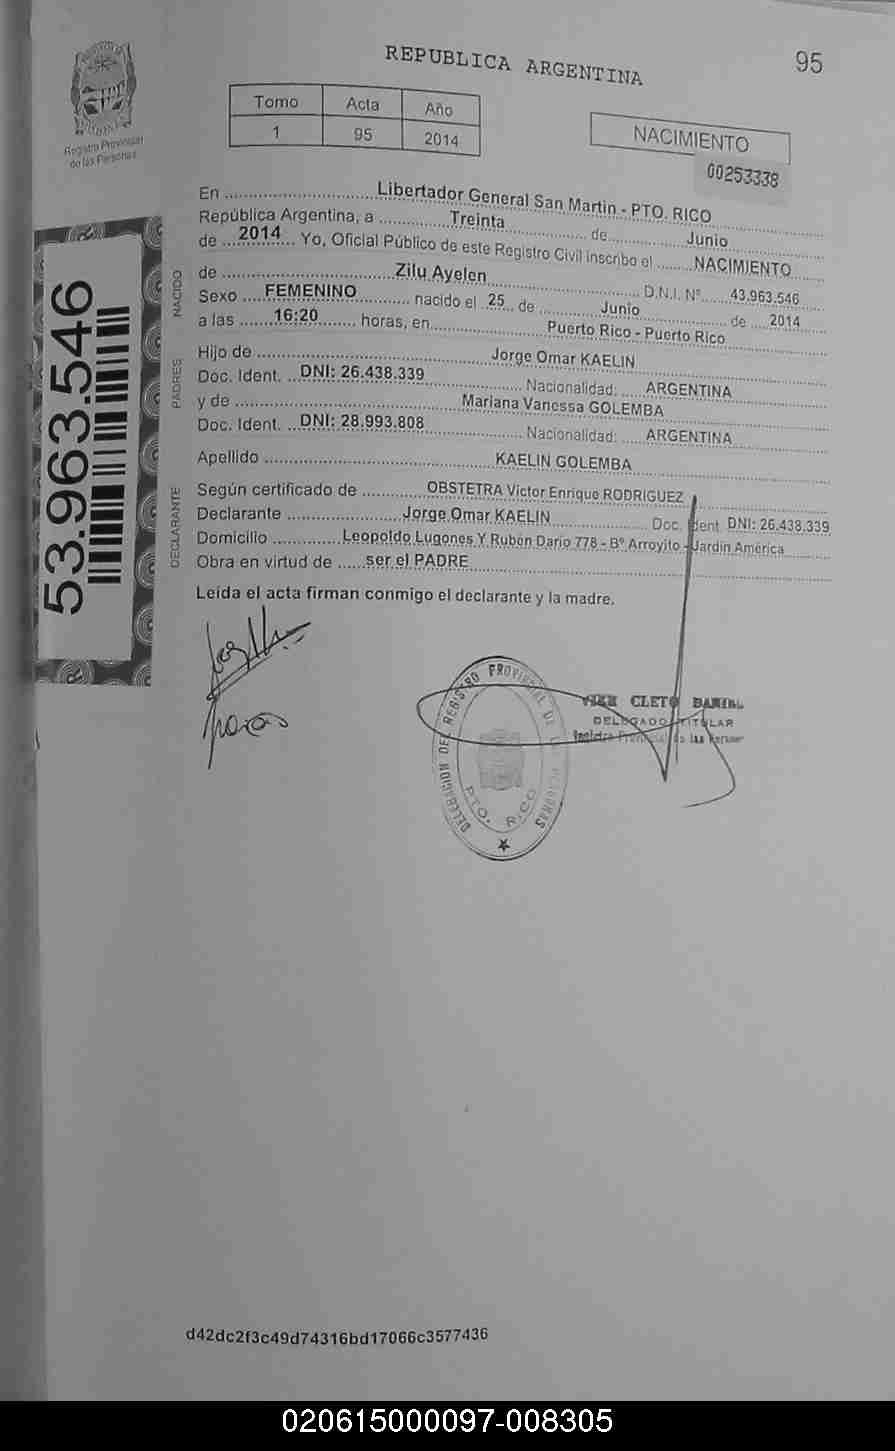 REPUBLICA ARGENTINA
95
Registro Provincial
de las Personas
Tomo Acta Año
1 95 2014
NACIMIENTO
00253338
53.963.546
NACIDO
PADRES
DECLARANTE
En Libertador General San Martin - PTO. RICO
República Argentina, a Treinta de Junio
de 2014 Yo, Oficial Público de este Registro Civil inscribo el NACIMIENTO
de Zilu Ayelen D.N.I. N° 43.963.546
Sexo FEMENINO nacido el 25 de Junio de 2014
a las 16:20 horas, en Puerto Rico - Puerto Rico
Hijo de Jorge Omar KAELIN
Doc. Ident. DNI: 26.438.339 Nacionalidad: ARGENTINA
y de Mariana Vanessa GOLEMBA
Doc. Ident. DNI: 28.993.808 Nacionalidad: ARGENTINA
Apellido KAELIN GOLEMBA
Según certificado de OBSTETRA Victor Enrique RODRIGUEZ
Declarante Jorge Omar KAELIN Doc. Ident. DNI: 26.438.339
Domicilio Leopoldo Lugones Y Rubén Darío 778 - B° Arroyito - Jardín América
Obra en virtud de ser el PADRE
Leída el acta firman conmigo el declarante y la madre.
CLETO DANIEL
DELEGADO TITULAR
Registro Provincial de las Person
DELEGACION DEL REGISTRO PROVINCIAL DE LAS PERSONAS
PTO. RICO
d42dc2f3c49d74316bd17066c3577436
020615000097-008305